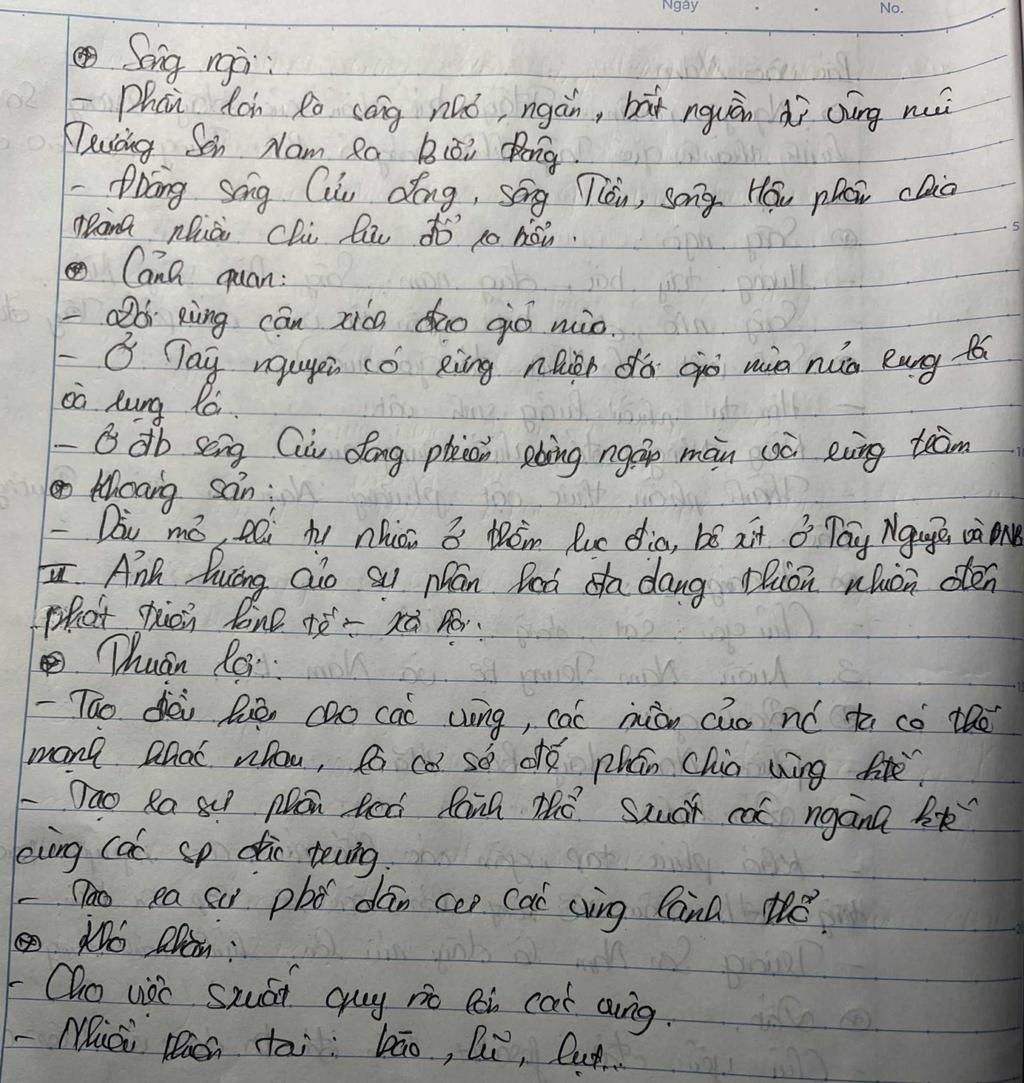 Ngày No.
⊕ Sông ngòi:
- Phần lớn là sông nhỏ, ngắn, bắt nguồn từ vùng núi
Trường Sơn Nam ra Biển Đông.
- Đồng sông Cửu Long, sông Tiền, sông Hậu phân chia
thành nhiều chi lưu đổ ra biển.
⊕ Cảnh quan:
- Đới rừng cận xích đạo gió mùa.
- Ở Tây nguyên có rừng nhiệt đới gió mùa nửa rụng lá
và rụng lá.
- Ở đb sông Cửu Long rừng ngập mặn và rừng tràm
⊕ Khoáng sản:
- Dầu mỏ, khí tự nhiên ở thềm lục địa, bô xít ở Tây Nguyên và ĐNB
II Ảnh hưởng của sự phân hoá đa dạng thiên nhiên đến
phát triển kinh tế - xã hội:
⊕ Thuận lợi:
- Tạo điều kiện cho các vùng, các miền của nc ta có thế
mạnh khác nhau, là cơ sở để phân chia vùng ktế.
- Tạo ra sự phân hoá lãnh thổ sxuất các ngành ktế
cùng các sp đặc trưng.
- Tạo ra sự phbố dân cư các vùng lãnh thổ.
⊕ Khó khăn:
- Cho việc sxuất quy mô lớn các vùng.
- Nhiều thiên tai: bão, lũ, lụt...
5
10
15
20